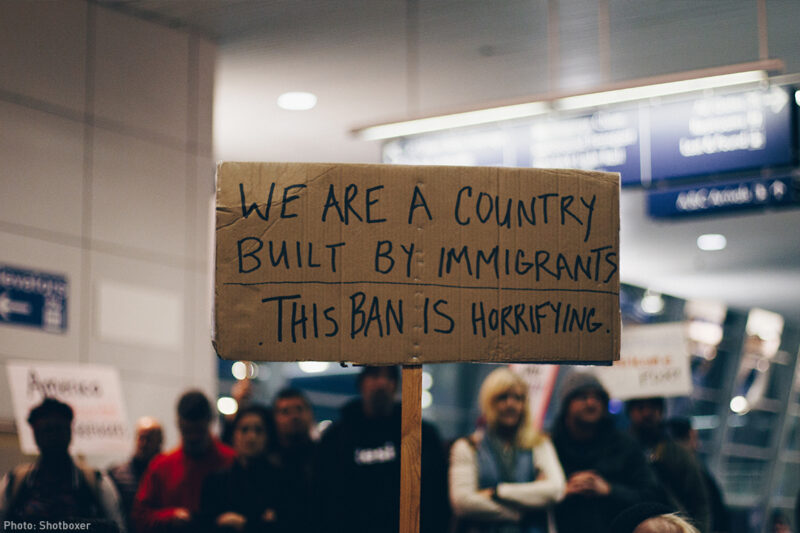 WE ARE A COUNTRY
BUILT BY IMMIGRANTS
THIS BAN IS HORRIFYING.
Photo: Shotboxer